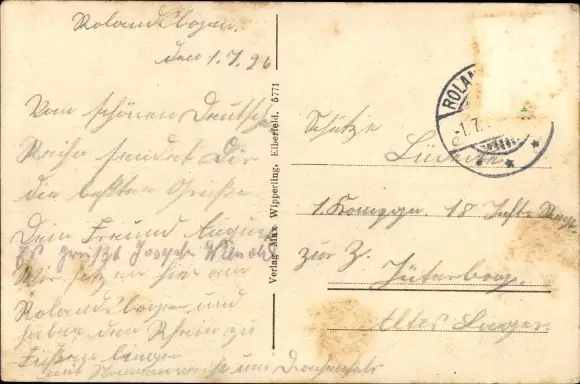 Rolandsbogen.
den 1.7.26
Vom schönen Deutschen
Rhein sendet Dir
die besten Grüße
Dein Freund August
Es grüßt Joseph
Wir sitzen hier am
Rolandsbogen und
haben den Rhein zu
Füßen liegen
und Drachenfels
Verlag Max Wipperling, Elberfeld. 5771
ROLAND
-1.7.
Schütze
Lüdecke
1. Kompgn. 18 Inft. Regt.
zur Z.
Jüterbog.
Altes Lager